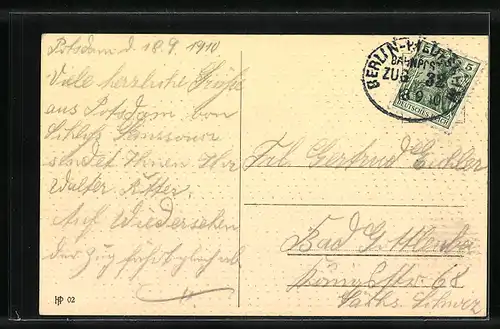 Potsdam d. 18.9.1910
Viele herzliche Grüße
aus Potsdam von
Schloß Sanssouci
sendet Ihnen Ihr
Walter
Auf Wiedersehen
der Zug fährt gleich ab.
HP 02
BERLIN-
BAHNPOST
ZUG 32
18 9 10
5
DEUTSCHES REICH
Gertrud
Bad Gottleuba
Königstr. 68
Sächs. Schweiz